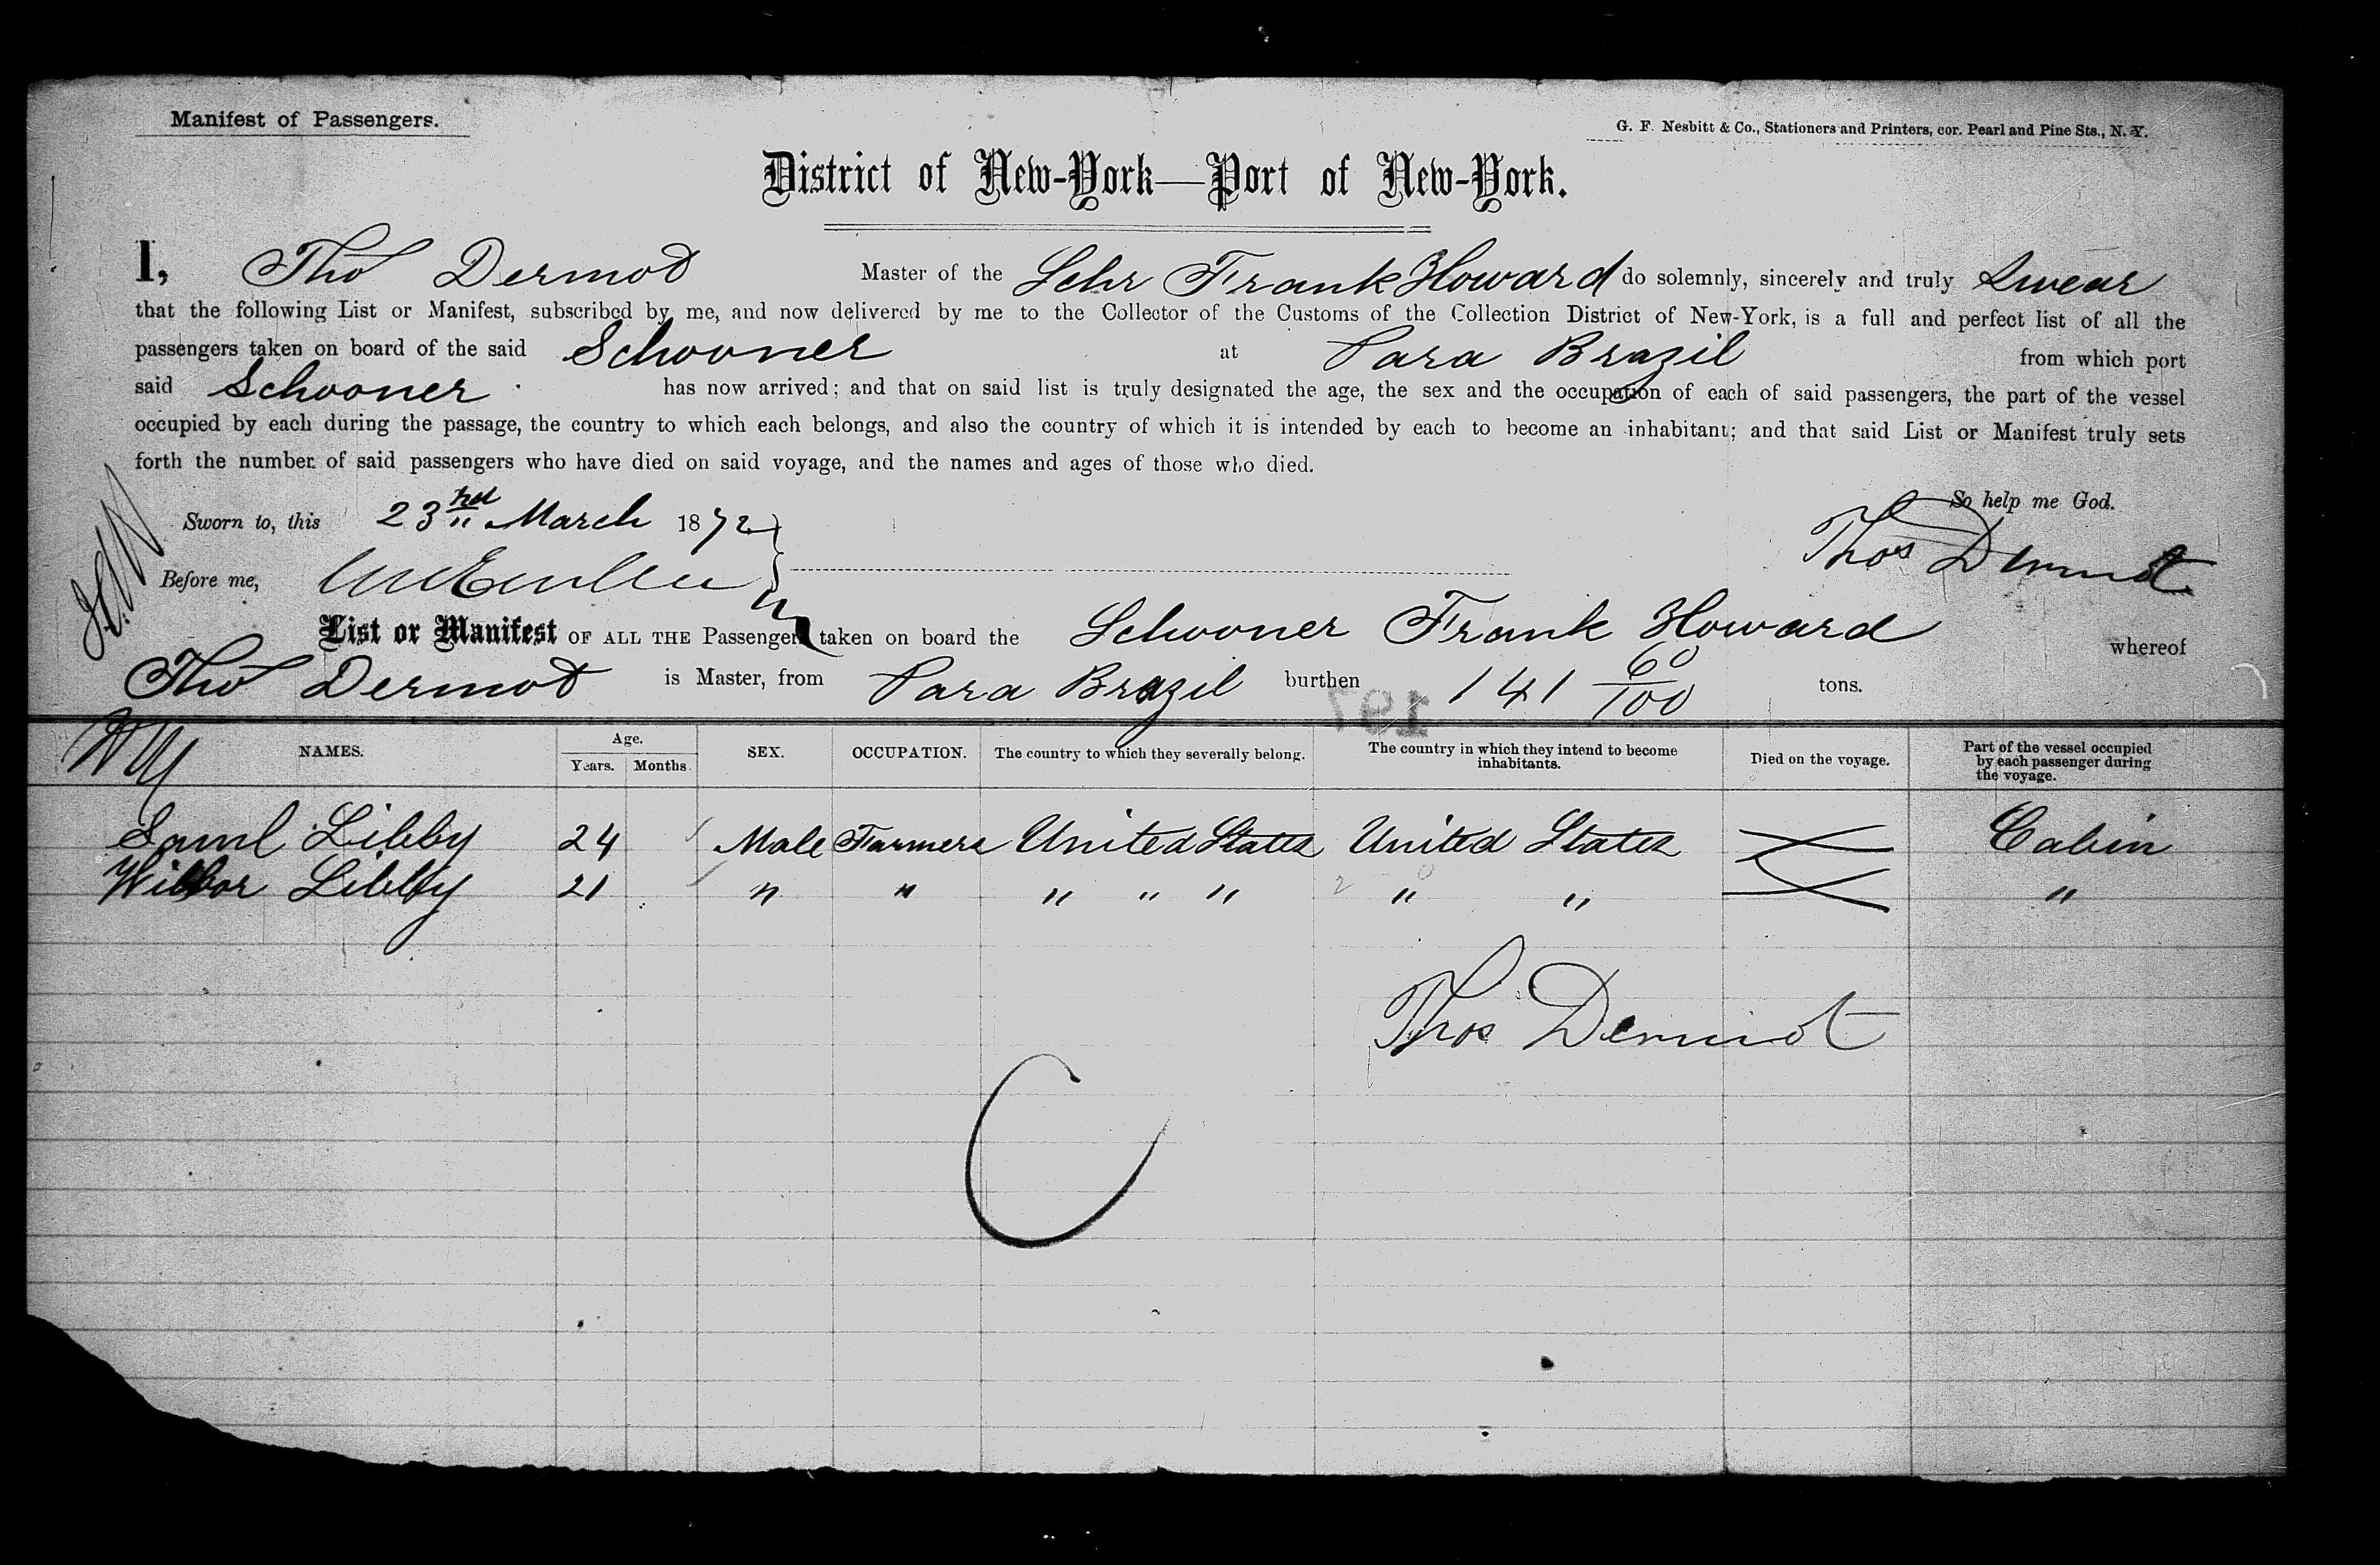 Manifest of Passengers.
G. F. Nesbitt & Co., Stationers and Printers, cor. Pearl and Pine Sts., N. Y.
District of New-York—Port of New-York.
I, Thos Dermot Master of the Schr Frank Howard do solemnly, sincerely and truly Swear
that the following List or Manifest, subscribed by me, and now delivered by me to the Collector of the Customs of the Collection District of New-York, is a full and perfect list of all the
passengers taken on board of the said Schooner at Para Brazil from which port
said Schooner has now arrived; and that on said list is truly designated the age, the sex and the occupation of each of said passengers, the part of the vessel
occupied by each during the passage, the country to which each belongs, and also the country of which it is intended by each to become an inhabitant; and that said List or Manifest truly sets
forth the number of said passengers who have died on said voyage, and the names and ages of those who died.
So help me God.
Sworn to, this 23rd March 1872
Thos Dermot
Before me,
List or Manifest OF ALL THE Passengers taken on board the Schooner Frank Howard whereof
Thos Dermot is Master, from Para Brazil burthen 141 60/100 tons.
197
NAMES. Age. Years. Months. SEX. OCCUPATION. The country to which they severally belong. The country in which they intend to become inhabitants. Died on the voyage. Part of the vessel occupied by each passenger during the voyage.
Saml Libby 24 Male Farmers United States United States Cabin
Wilbor Libby 21 " " " " " " " "
Thos Dermot
C